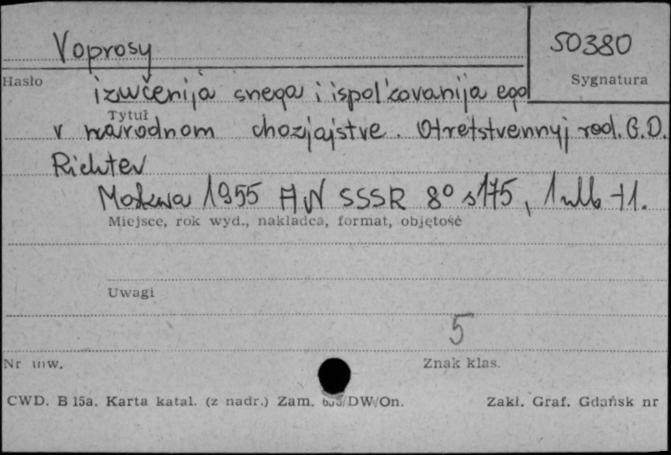 Voprosy
50380
Hasło
Sygnatura
izučenija snega i ispol'zovanija ego
Tytuł
v narodnom chozjajstve. Otvetstvennyj red. G.D.
Richter
Moskva 1955 AN SSSR 8° s 175, 1 nlb +1.
Miejsce, rok wyd., nakładca, format, objętość
Uwagi
5
Nr inw.
Znak klas.
CWD. B 15a. Karta katal. (z nadr.) Zam. DW/On.
Zakl. Graf. Gdańsk nr